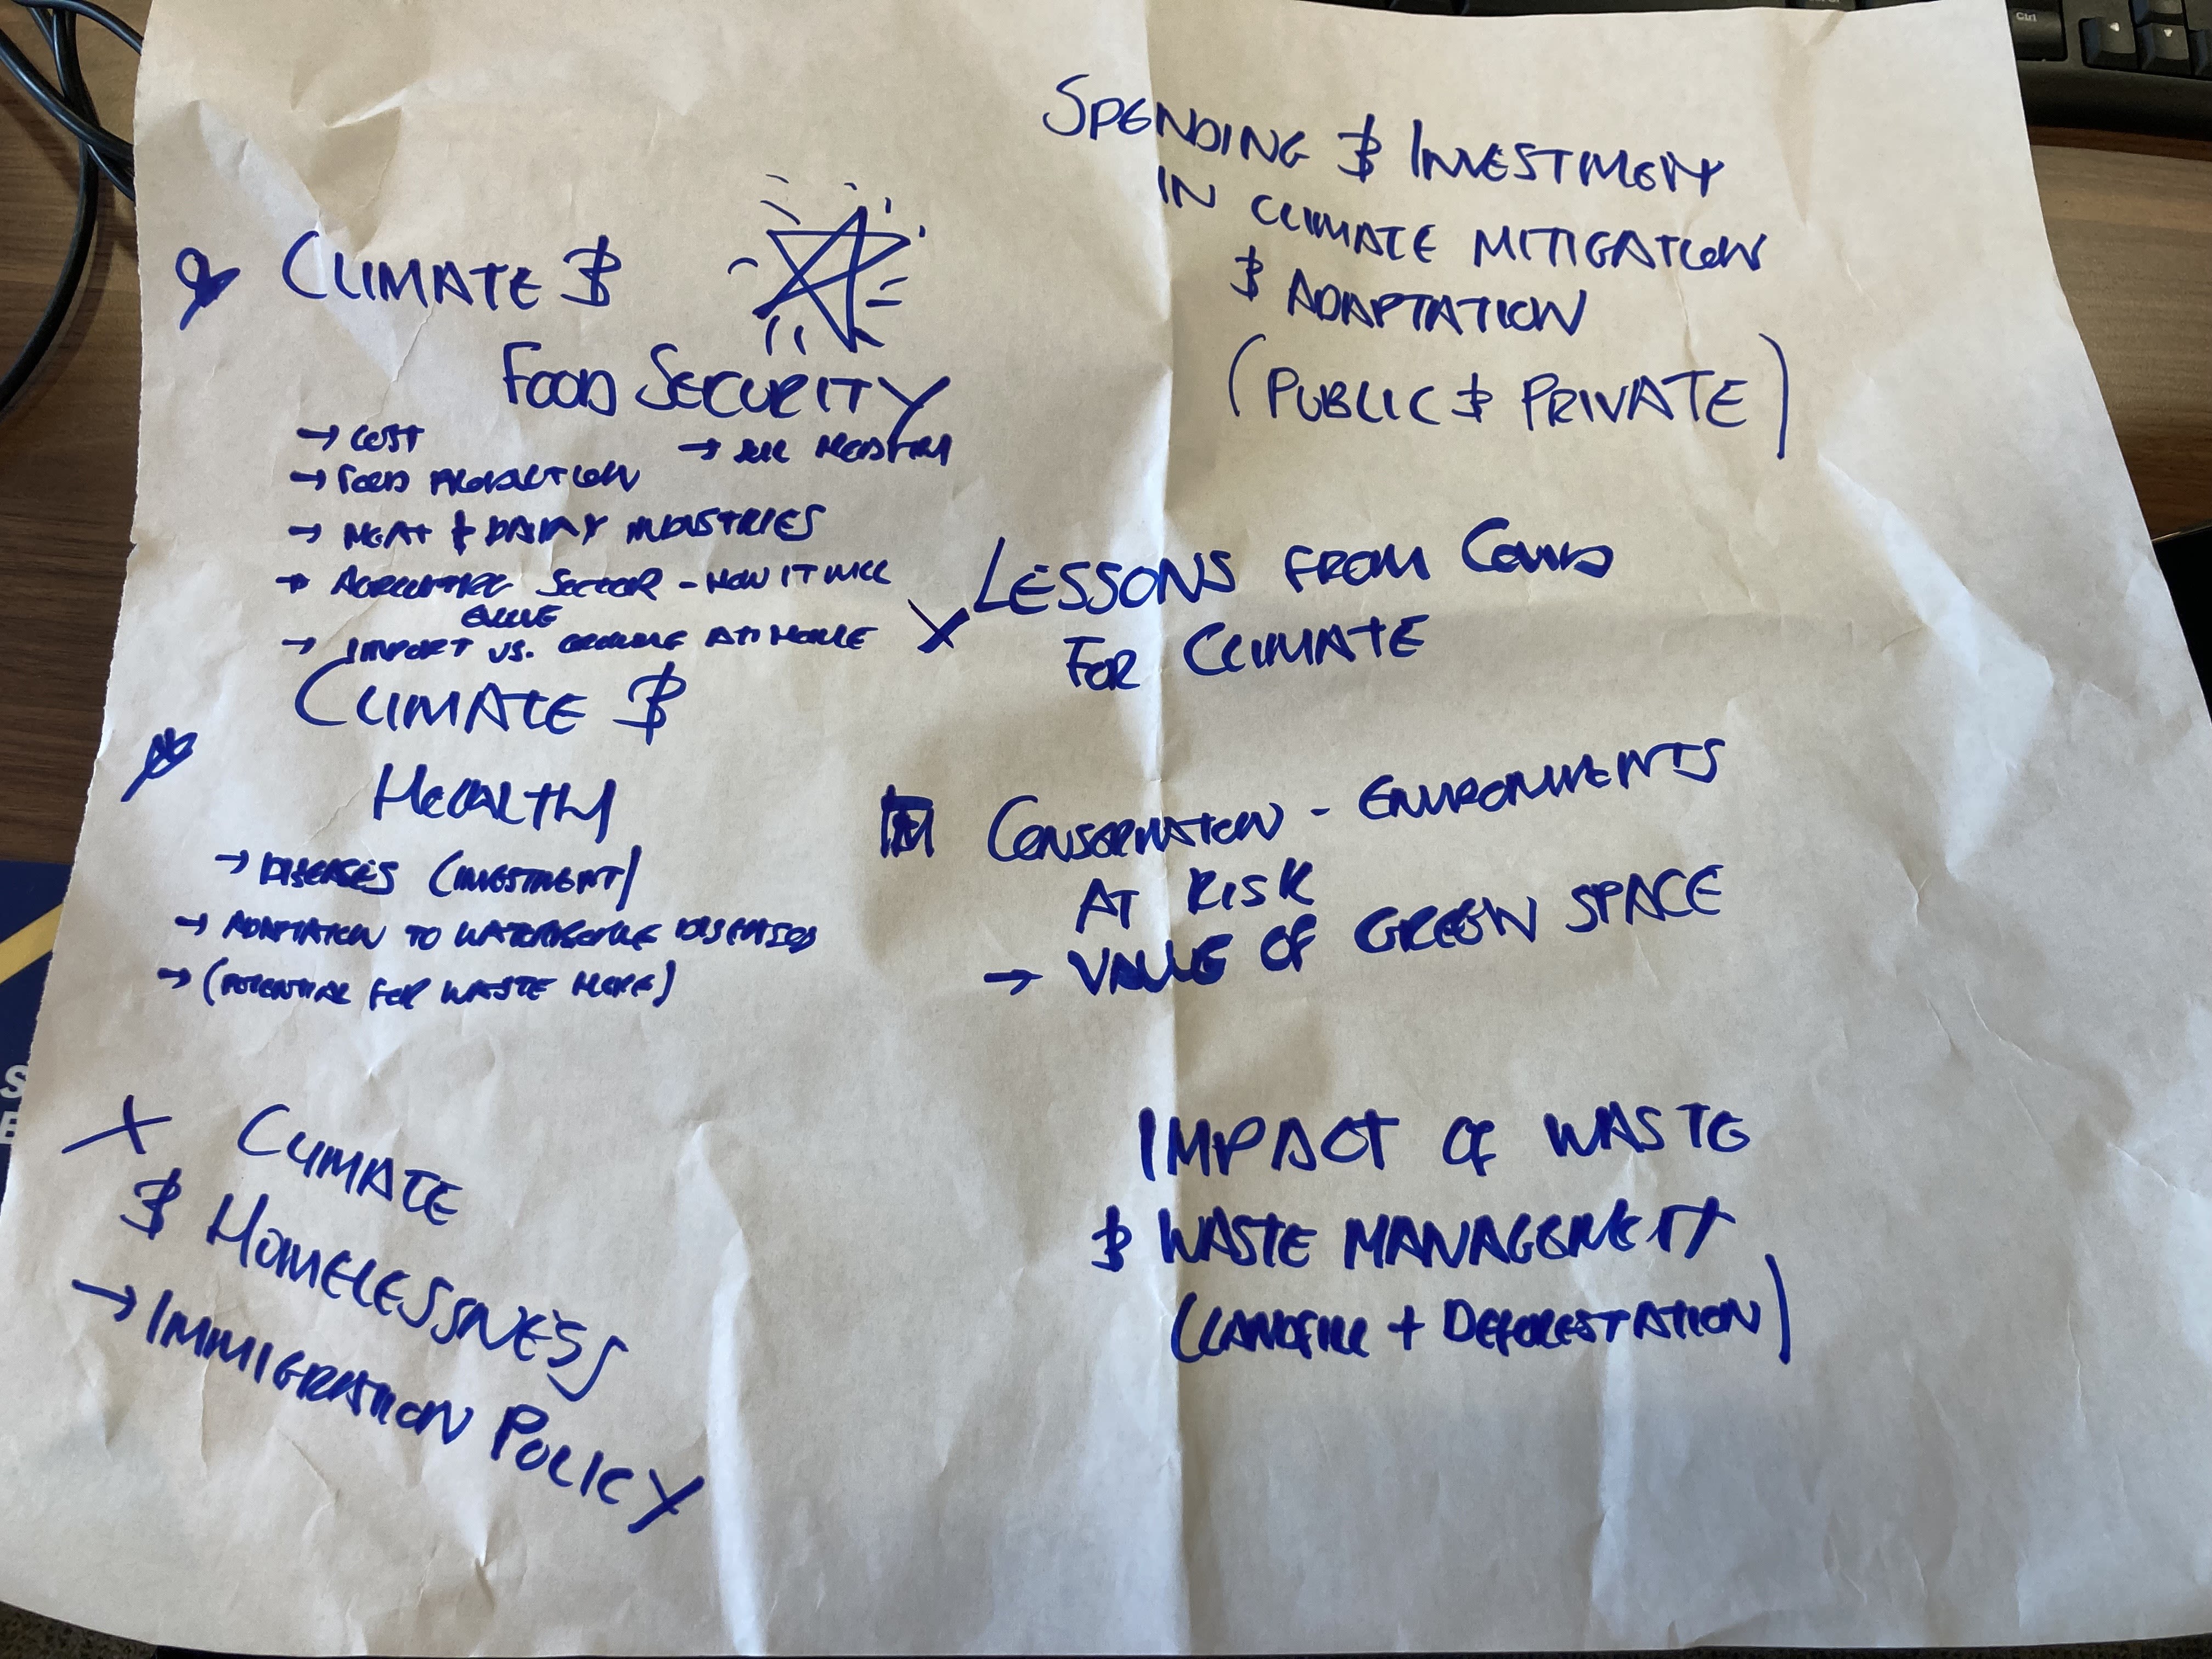 CLIMATE &
FOOD SECURITY
→ COST
→ SOIL HEALTH
→ FOOD PRODUCTION
→ MEAT & DAIRY INDUSTRIES
→ AGRICULTURE SECTOR - HOW IT WILL
EVOLVE
→ IMPORT VS. GROWING AT HOME
CLIMATE &
HEALTH
→ DISEASES (INVESTMENT)
→ ADAPTATION TO WATERBORNE DISEASES
→ (POTENTIAL FOR WASTE HERE)
X CLIMATE
& HOMELESSNESS
→ IMMIGRATION POLICY
SPENDING & INVESTMENT
IN CLIMATE MITIGATION
& ADAPTATION
(PUBLIC & PRIVATE)
X LESSONS FROM COVID
FOR CLIMATE
CONSERVATION - ENVIRONMENTS
AT RISK
→ VALUE OF GREEN SPACE
IMPACT OF WASTE
& WASTE MANAGEMENT
(LANDFILL + DEFORESTATION)
Ctrl